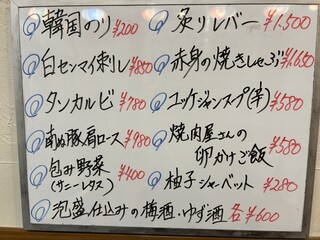 韓国のり ¥200
白センマイ刺し ¥850
タンカルビ ¥780
南ぬ豚肩ロース ¥980
包み野菜 ¥400
(サニーレタス)
炙りレバー ¥1,500
赤身の焼きしゃぶ ¥1,650
ユッケジャンスープ(辛) ¥580
焼肉屋さんの
卵かけご飯 ¥580
柚子シャーベット ¥280
泡盛仕込みの梅酒・ゆず酒 各¥600